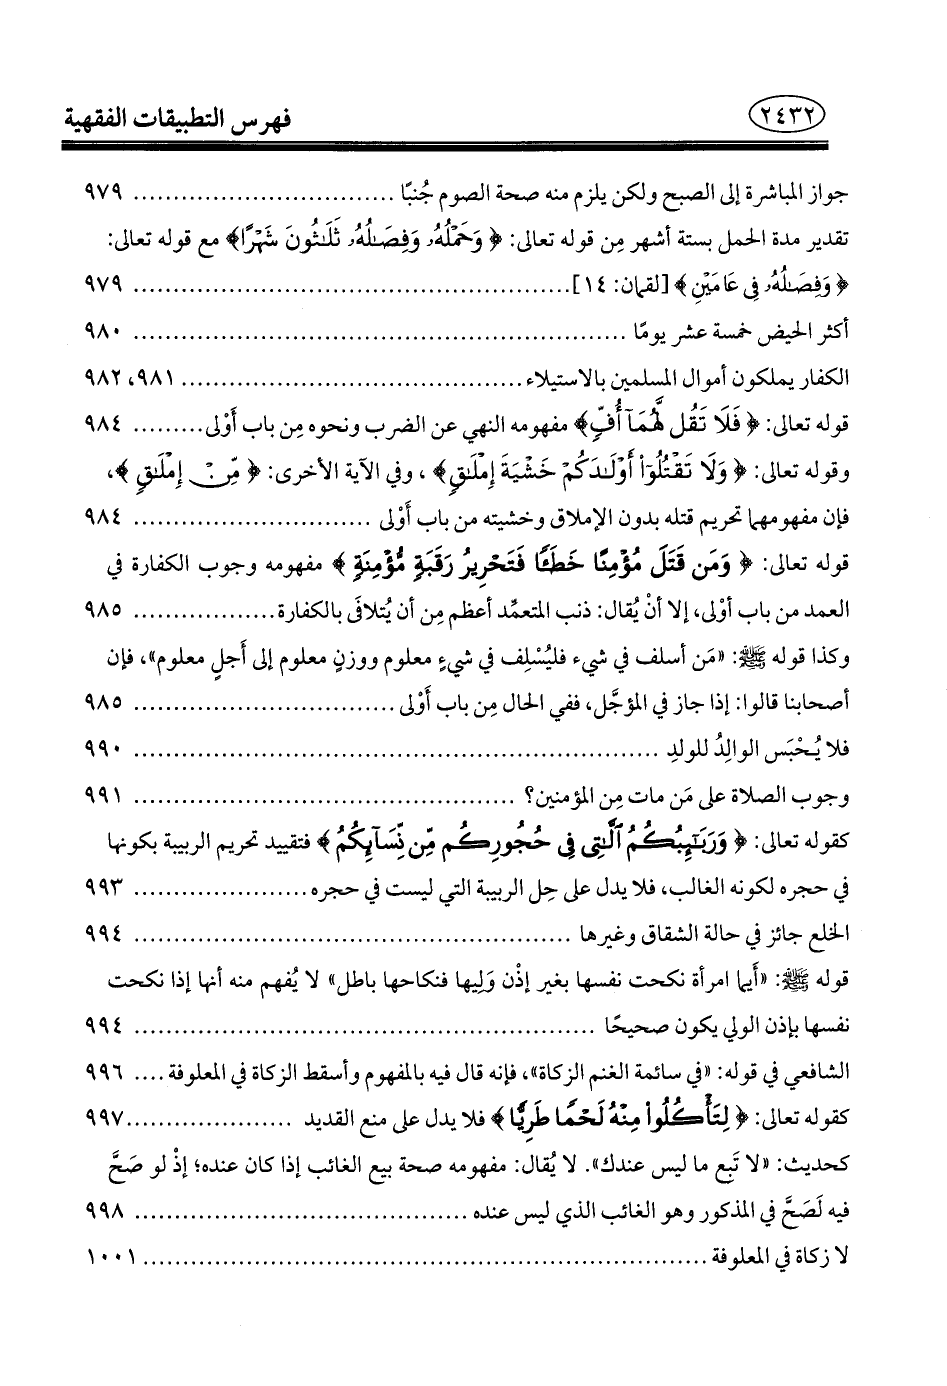 ٢٤٣٢ فهرس التطبيقات الفقهية
جواز المباشرة إلى الصبح ولكن يلزم منه صحة الصوم جُنبًا ................................ ٩٧٩
تقدير مدة الحمل بستة أشهر مِن قوله تعالى: ﴿ وَحَمْلُهُۥ وَفِصَٰلُهُۥ ثَلَٰثُونَ شَهْرًا﴾ مع قوله تعالى:
﴿ وَفِصَٰلُهُۥ فِى عَامَيْنِ ﴾ [لقمان: ١٤]...................................................... ٩٧٩
أكثر الحيض خمسة عشر يومًا .............................................................. ٩٨٠
الكفار يملكون أموال المسلمين بالاستيلاء........................................... ٩٨١، ٩٨٢
قوله تعالى: ﴿ فَلَا تَقُل لَّهُمَآ أُفٍّ﴾ مفهومه النهي عن الضرب ونحوه مِن باب أَوْلى......... ٩٨٤
وقوله تعالى: ﴿ وَلَا تَقْتُلُوٓا۟ أَوْلَٰدَكُمْ خَشْيَةَ إِمْلَٰقٍ﴾ ، وفي الآية الأخرى: ﴿ مِّنْ إِمْلَٰقٍ ﴾،
فإن مفهومهما تحريم قتله بدون الإملاق وخشيته من باب أَوْلى .............................. ٩٨٤
قوله تعالى: ﴿ وَمَن قَتَلَ مُؤْمِنًا خَطَـًٔا فَتَحْرِيرُ رَقَبَةٍ مُّؤْمِنَةٍ ﴾ مفهومه وجوب الكفارة في
العمد من باب أَوْلى، إلا أنْ يُقال: ذنب المتعمِّد أعظم مِن أن يُتلافَى بالكفارة.................. ٩٨٥
وكذا قوله ﷺ: «مَن أسلف في شيء فليُسْلِف في شيءٍ معلوم ووزنٍ معلوم إلى أجلٍ معلوم»، فإن
أصحابنا قالوا: إذا جاز في المؤجَّل، ففي الحال مِن باب أَوْلى ................................. ٩٨٥
فلا يُحْبَس الوالِدُ للولدِ .................................................................. ٩٩٠
وجوب الصلاة على مَن مات مِن المؤمنين؟ ................................................ ٩٩١
كقوله تعالى: ﴿ وَرَبَٰٓئِبُكُمُ ٱلَّٰتِى فِى حُجُورِكُم مِّن نِّسَآئِكُمُ ﴾ فتقييد تحريم الربيبة بكونها
في حجره لكونه الغالب، فلا يدل على حِل الربيبة التي ليست في حجره...................... ٩٩٣
الخلع جائز في حالة الشقاق وغيرها ....................................................... ٩٩٤
قوله ﷺ: «أَيما امرأة نكحت نفسها بغير إذْن وَلِيها فنكاحها باطل» لا يُفهم منه أنها إذا نكحت
نفسها بإذن الولي يكون صحيحًا .......................................................... ٩٩٤
الشافعي في قوله: «في سائمة الغنم الزكاة»، فإنه قال فيه بالمفهوم وأسقط الزكاة في المعلوفة .... ٩٩٦
كقوله تعالى: ﴿ لِتَأْكُلُوا۟ مِنْهُ لَحْمًا طَرِيًّا ﴾ فلا يدل على منع القديد .....................٩٩٧
كحديث: «لا تَبِع ما ليس عندك». لا يُقال: مفهومه صحة بيع الغائب إذا كان عنده؛ إذْ لو صَحَّ
فيه لَصَحَّ في المذكور وهو الغائب الذي ليس عنده .......................................... ٩٩٨
لا زكاة في المعلوفة ....................................................................... ١٠٠١